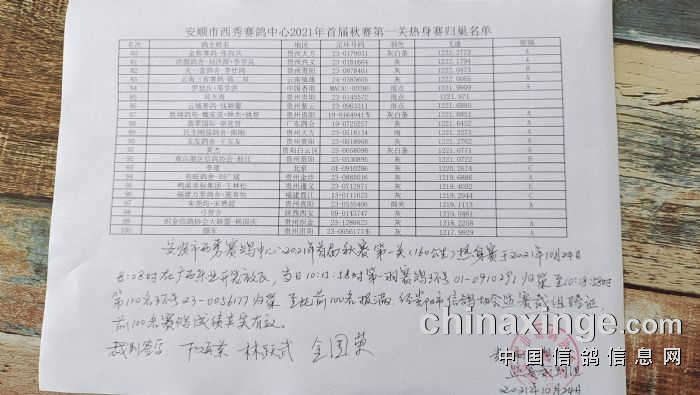 安顺市西秀赛鸽中心2021年首届秋赛第一关热身赛归巢名单
名次 鸽主姓名 地区 足环号码 羽色 飞速 组别
80 金焦鸽舍-张向兵 贵州大方 23-0179931 灰白条 1222.2773 A
81 洪源鸽舍-刘洪源+李学兵 贵州兴义 23-0181664 灰 1222.1794 A
82 天一富鸽舍-李仕鸿 贵州贵阳 23-0878401 灰 1222.0473 B
83 云南三省赛鸽-陈二双 云南镇雄 24-0385605 灰 1222.0065 A
84 罗世庆+邓享洪 中国香港 MACAU-00380 雨点 1221.9909 A
85 邱光海 贵州贵阳 23-0145572 雨点 1221.971
86 云城赛鸽-钱颖馨 贵州紫云 23-0963311 雨点 1221.6895
87 贵州贵阳 19-0164941车 灰白条 1221.6851 A
88 翡翠国际-骆兆贤 广东四会 19-0725257 灰 1221.6452 A
89 民生刚强鸽舍-陈刚 贵州大方 23-0518134 雨 1221.3273 A
90 玉友鸽舍-王玉友 贵州贵阳 23-0518968 灰 1221.2762 A
91 黄杰 贵阳白云区 23-0058098 灰白条 1221.0771 A
92 观山湖区信鸽协会-杜江 贵州贵阳 23-0530895 灰 1221.0722 B
93 李璠 北京 01-0910286 灰 1220.2674 C
94 有旺鸽舍-刘广斌 贵州金沙 23-0885016 灰 1219.6886 A
95 鸭溪帝标集团-王林松 贵州遵义 23-0712971 灰 1219.4032 E
96 福建万里鸽舍-施育恒 福建晋江 13-0111623 灰 1219.2944 C
97 宋尧均+宋懋超 贵州贵阳 23-0535406 雨夹 1219.1173 A
98 弓智含 陕西西安 09-0143747 灰 1219.0461
99 织金信鸽协会大联盟-杨国庆 贵州织金 23-1286623 灰 1218.2258 A
100 颜军 贵州贵阳 23-0056177车 灰 1217.9929 A
安顺市西秀赛鸽中心:2021年首届秋赛第一关(160公里)热身赛于2021年10月24日
8:08时在广西乐业开笼放飞,当日10:15:58时第一羽赛鸽环号01-0910291归巢至10:18:58时
第100名环号23-0056177归巢至此前100名报满,经贵阳市信鸽协会监赛裁组验证,
前100名赛鸽成绩真实有效。
裁判签字:
2021年10月24日
chinaxinge.com
中国信鸽信息网